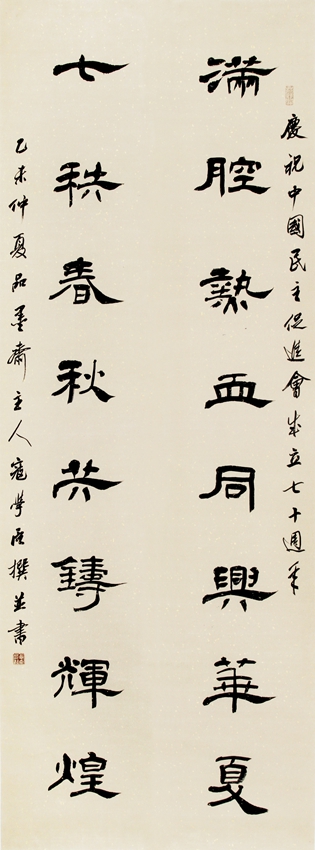 慶祝中國民主促進會成立七十週年
滿腔熱血同興華夏
七秩春秋共鑄輝煌
乙未仲夏品墨齋主人寇學臣撰並書